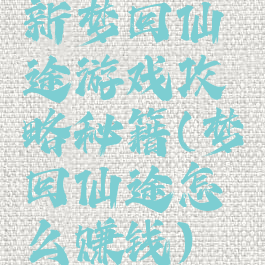 新梦回仙
途游戏攻
略秘籍(梦
回仙途怎
么赚钱)